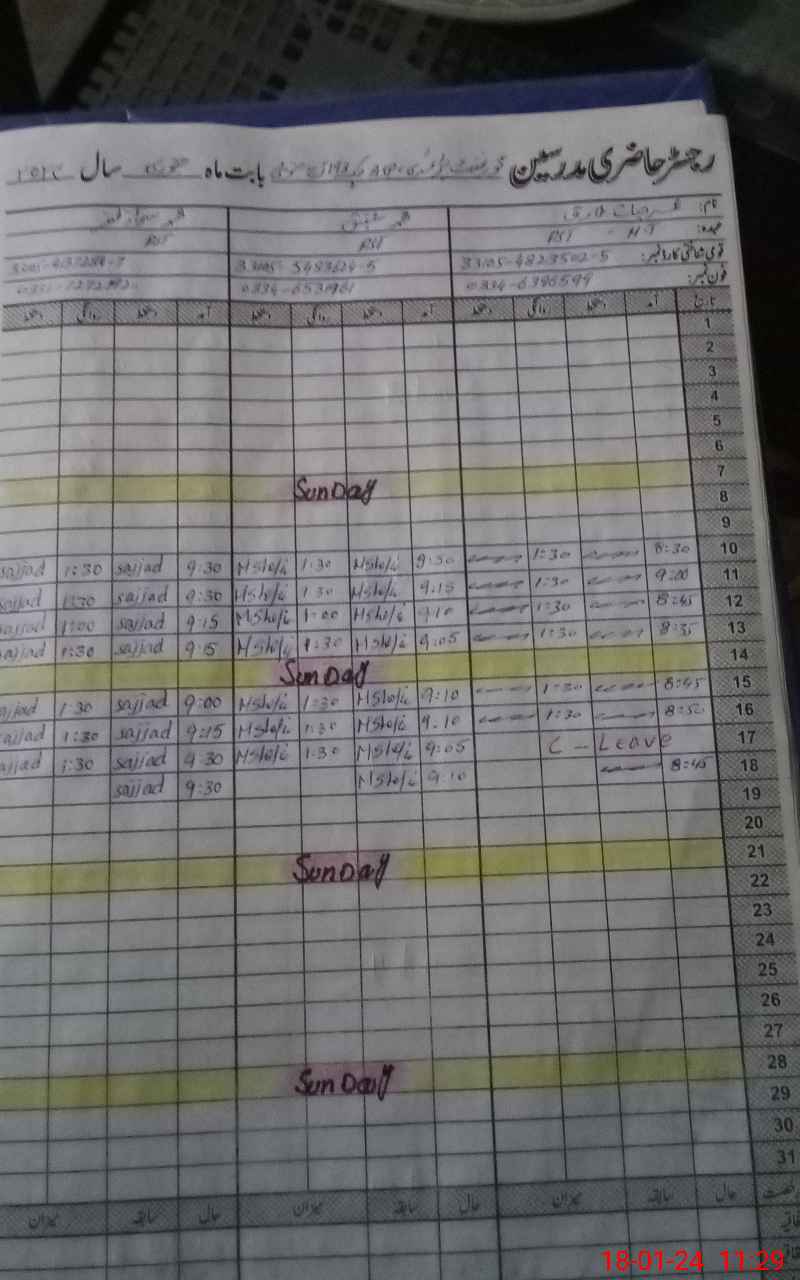 رجسٹر حاضری مدرسین بابت ماہ سال
نام:
عہدہ: PST - H.T PST PST
قومی شناختی کارڈ نمبر: 33105-4823502-5 33105-5493624-5
فون نمبر: 0334-6396599 0334-6531961
تاریخ آمد دستخط روانگی دستخط آمد دستخط روانگی دستخط آمد دستخط روانگی
1
2
3
4
5
6
7 SunDay
8
9
10 8:30 1:30 9:30 MShafi 1:30 MShafi 9:30 sajjad 1:30 sajjad
11 9:00 1:30 9:15 MShafi 1:30 MShafi 9:30 sajjad 1:30 sajjad
12 8:45 1:30 9:10 MShafi 1:00 MShafi 9:15 sajjad 1:00 sajjad
13 8:35 1:30 9:05 MShafi 1:30 MShafi 9:15 sajjad 1:30 sajjad
14 SunDay
15 8:45 1:30 9:10 MShafi 1:30 MShafi 9:00 sajjad 1:30 sajjad
16 8:50 1:30 9:10 MShafi 1:30 MShafi 9:15 sajjad 1:30 sajjad
17 C - Leave 9:05 MShafi 1:30 MShafi 9:30 sajjad 1:30 sajjad
18 8:45 9:10 MShafi 9:30 sajjad
19
20
21 SunDay
22
23
24
25
26
27
28 SunDay
29
30
31
حال سابقہ میزان حال سابقہ میزان حال سابقہ میزان
18-01-24 11:29